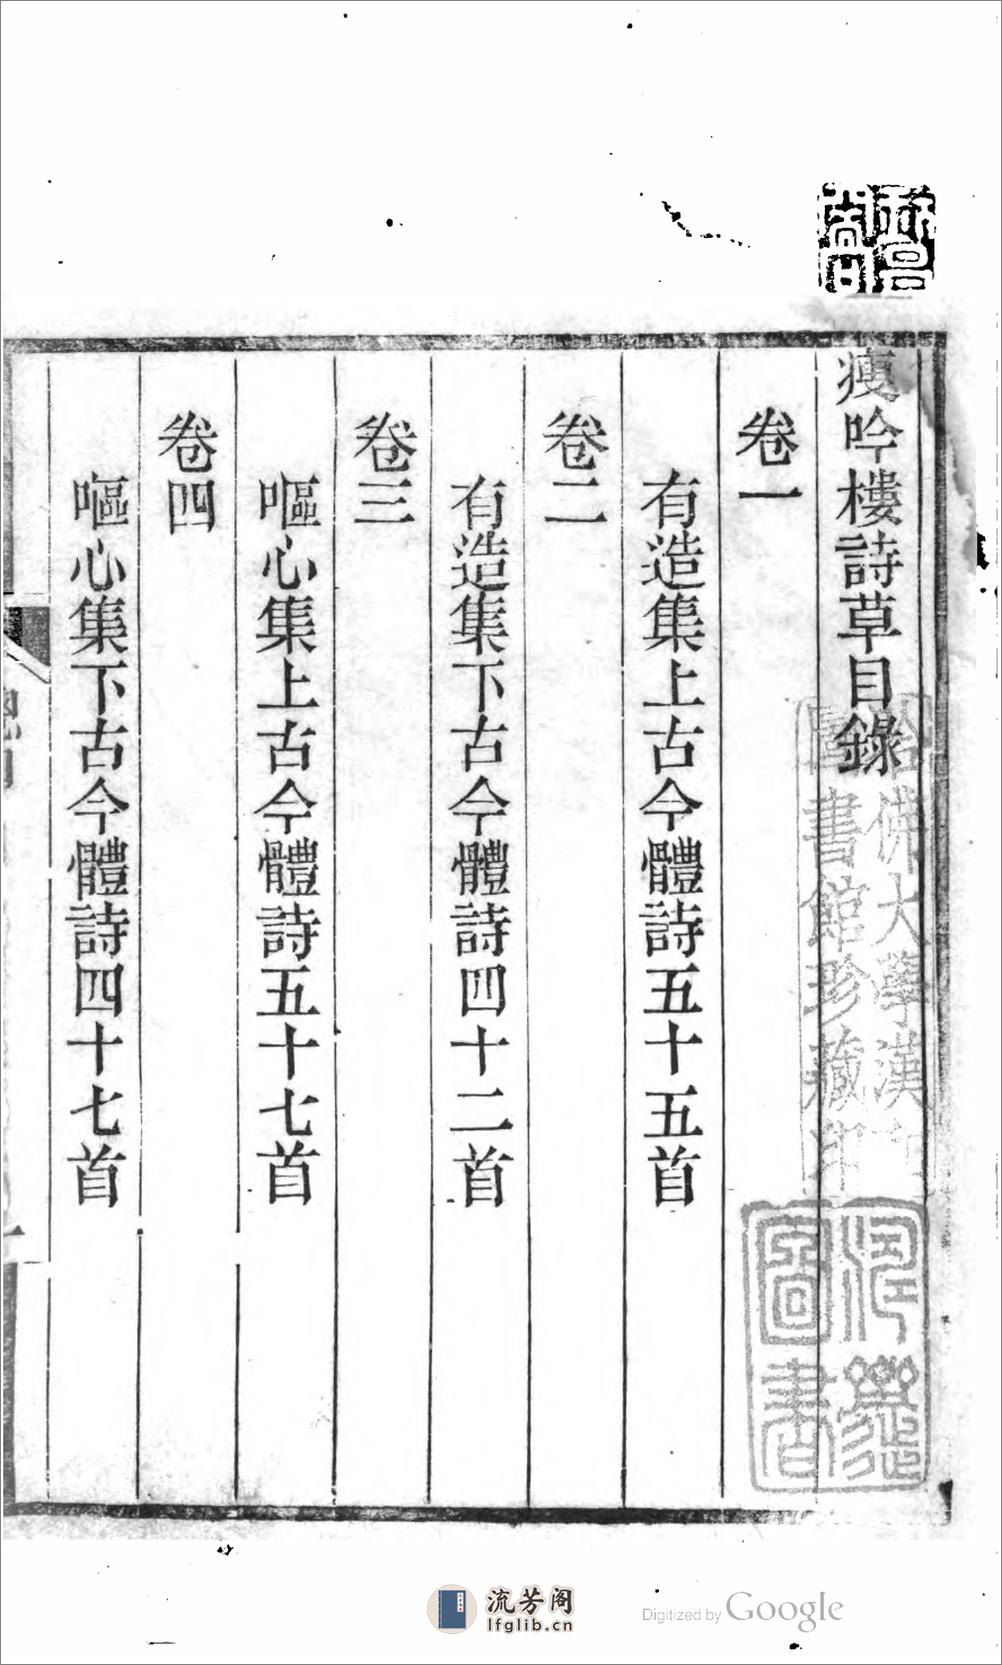 瘦吟樓詩草目錄
卷一
有造集上古今體詩五十五首
卷二
有造集下古今體詩四十二首
卷三
嘔心集上古今體詩五十七首
卷四
嘔心集下古今體詩四十七首
哈佛大學漢和
圖書館珍藏印
圖書
流芳阁
lfglib.cn
Digitized by Google